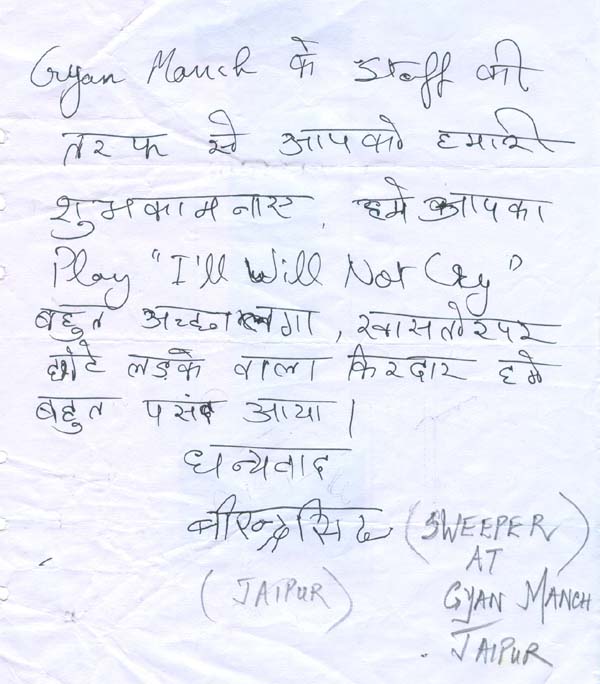 Gyan Manch के Staff की
तरफ से आपको हमारी
शुभकामनाएं, हमे आपका
Play "I'll Will Not Cry"
बहुत अच्छा लगा, खासतौर पर
छोटे लड़के वाला किरदार हमे
बहुत पसंद आया।
धन्यवाद
बीरेन्द्र सिंह (SWEEPER
AT
GYAN MANCH
JAIPUR)
(JAIPUR)